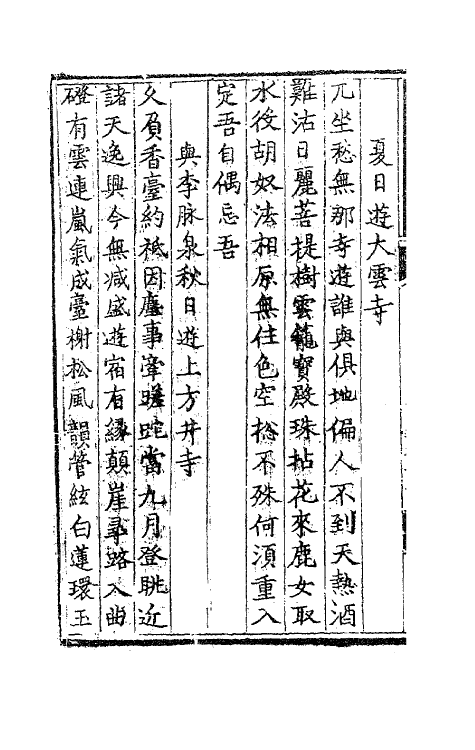 夏日遊大雲寺
兀坐愁無那寺遊誰與俱地偏人不到天熱酒
難沽日麗菩提樹雲籠寶殿珠拈花來鹿女取
水役胡奴法相原無住色空捴不殊何須重入
定吾自偶忘吾
與李脉泉秋日遊上方井寺
久負香臺約祗因塵事牽蹉跎當九月登眺近
諸天逸興今無减盛遊宿有緣顛崖尋路入曲
磴有雲連嵐氣成臺榭松風韻管絃白蓮環玉